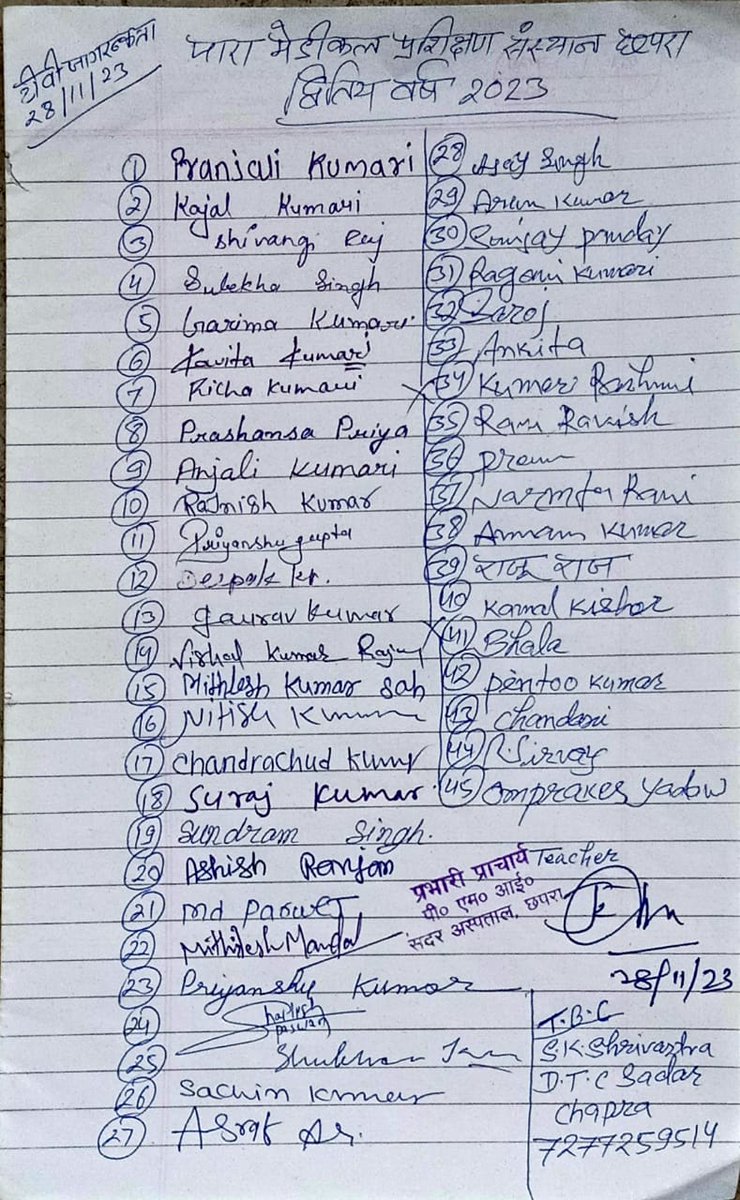 टीवी जागरूकता
28/11/23
पारा मेडीकल प्रशिक्षण संस्थान छपरा
द्वितिय वर्ष 2023
1 Pranjali Kumari
2 Kajal Kumari
3 Shivangi Raj
4 Sulekha Singh
5 Garima Kumari
6 Kavita Kumari
7 Richa Kumari
8 Prashansa Priya
9 Anjali Kumari
10 Rajnish Kumar
11 Priyanshu gupta
12 Deepak kr.
13 gaurav kumar
14 Vishal Kumar
15 Mithlesh Kumar Sah
16 Nitish Kumar
17 Chandrachud Kumar
18 Suraj Kumar
19 Sundram Singh.
20 Ashish Ranjan
21 md Parwej
22 Mithilesh Mandal
23 Priyanshu Kumar
24 Shailesh Paswan
25
26 Sachin Kumar
27
28 Ajay Singh
29 Arun Kumar
30 Ranjay panday
31 Ragani Kumari
32 Saroj
33 Ankita
34 Kumari Rashmi
35 Ram Ravish
36 Prem
37 Rani
38 Kumar
39 राजू राज
40 Kamal Kishor
41 Bhala
42 Pentoo Kumar
43 Chandani
44
45 Omprakes yadow
Teacher
प्रभारी प्राचार्य
पी० एम० आई०
सदर अस्पताल, छपरा
28/11/23
T.B.C
S.K. Shrivastra
D.T.C Sadar
Chapra
7277259514